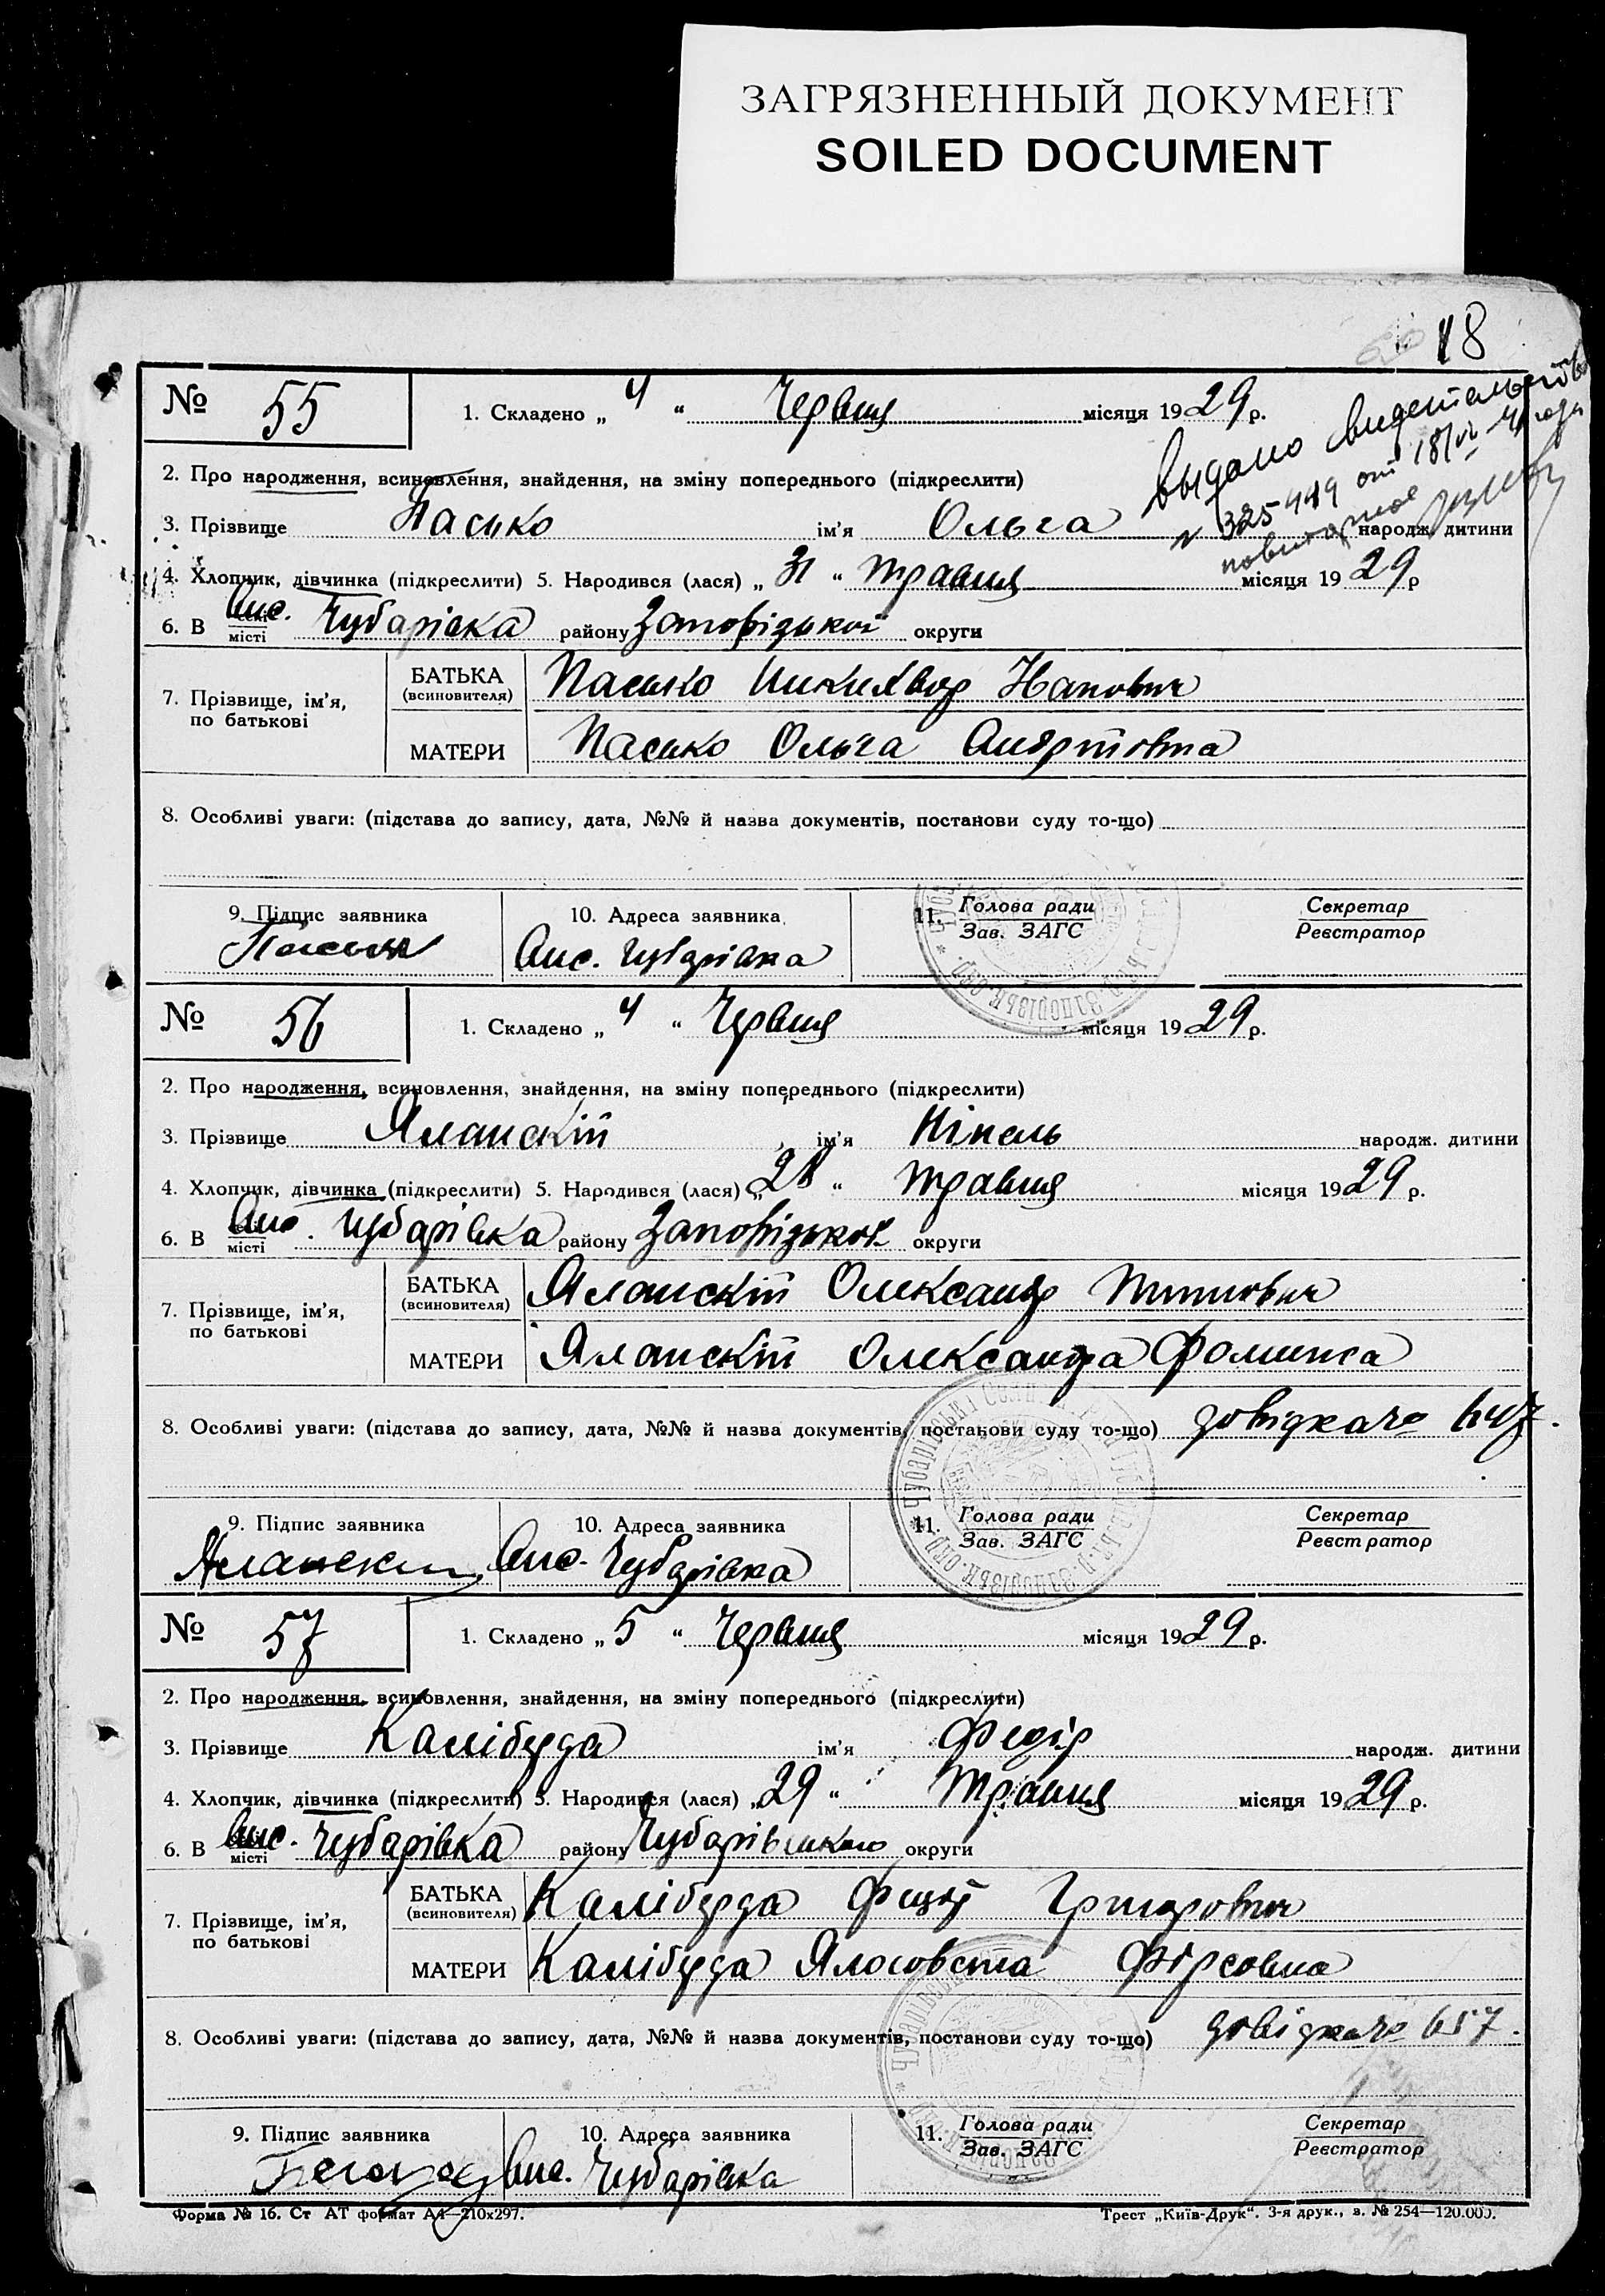 ЗАГРЯЗНЕННЫЙ ДОКУМЕНТ
SOILED DOCUMENT
18
№ 55
1. Складено „ 4 “ Червня місяця 1929 р.
Выдано свидетельство
№ 325449 от 18/
повторное
2. Про народження, всиновлення, знайдення, на зміну попереднього (підкреслити)
3. Прізвище Пасько ім'я Ольга народж. дитини
4. Хлопчик, дівчинка (підкреслити) 5. Народився (лася) „ 31 “ травня місяця 1929 р
6. В місті Чубарівка району Запорізької округи
7. Прізвище, ім'я, по батькові
БАТЬКА (всиновителя) Пасько
МАТЕРИ Пасько Ольга
8. Особливі уваги: (підстава до запису, дата, №№ й назва документів, постанови суду то-що)
9. Підпис заявника 10. Адреса заявника 11. Голова ради Зав. ЗАГС Секретар Реєстратор
Чубарівка
№ 56
1. Складено „ 4 “ Червня місяця 1929 р.
2. Про народження, всиновлення, знайдення, на зміну попереднього (підкреслити)
3. Прізвище Яланскій ім'я Нінель народж. дитини
4. Хлопчик, дівчинка (підкреслити) 5. Народився (лася) „ 28 “ травня місяця 1929 р.
6. В місті Чубарівка району Запорізької округи
7. Прізвище, ім'я, по батькові
БАТЬКА (всиновителя) Яланскій Олександр
МАТЕРИ Яланскій Олександра
8. Особливі уваги: (підстава до запису, дата, №№ й назва документів, постанови суду то-що) довідка № 647.
9. Підпис заявника 10. Адреса заявника 11. Голова ради Зав. ЗАГС Секретар Реєстратор
Чубарівка
№ 57
1. Складено „ 5 “ Червня місяця 1929 р.
2. Про народження, всиновлення, знайдення, на зміну попереднього (підкреслити)
3. Прізвище Калібурда ім'я Федір народж. дитини
4. Хлопчик, дівчинка (підкреслити) 5. Народився (лася) „ 29 “ Травня місяця 1929 р.
6. В місті Чубарівка району Чубарівського округи
7. Прізвище, ім'я, по батькові
БАТЬКА (всиновителя) Калібурда Григорович
МАТЕРИ Калібурда Фірсовна
8. Особливі уваги: (підстава до запису, дата, №№ й назва документів, постанови суду то-що) довідка № 657.
9. Підпис заявника 10. Адреса заявника 11. Голова ради Зав. ЗАГС Секретар Реєстратор
Чубарівка
Форма № 16. Ст АТ формат А4—210х297.
Трест „Київ-Друк“. 3-я друк., з. № 254—120.000.